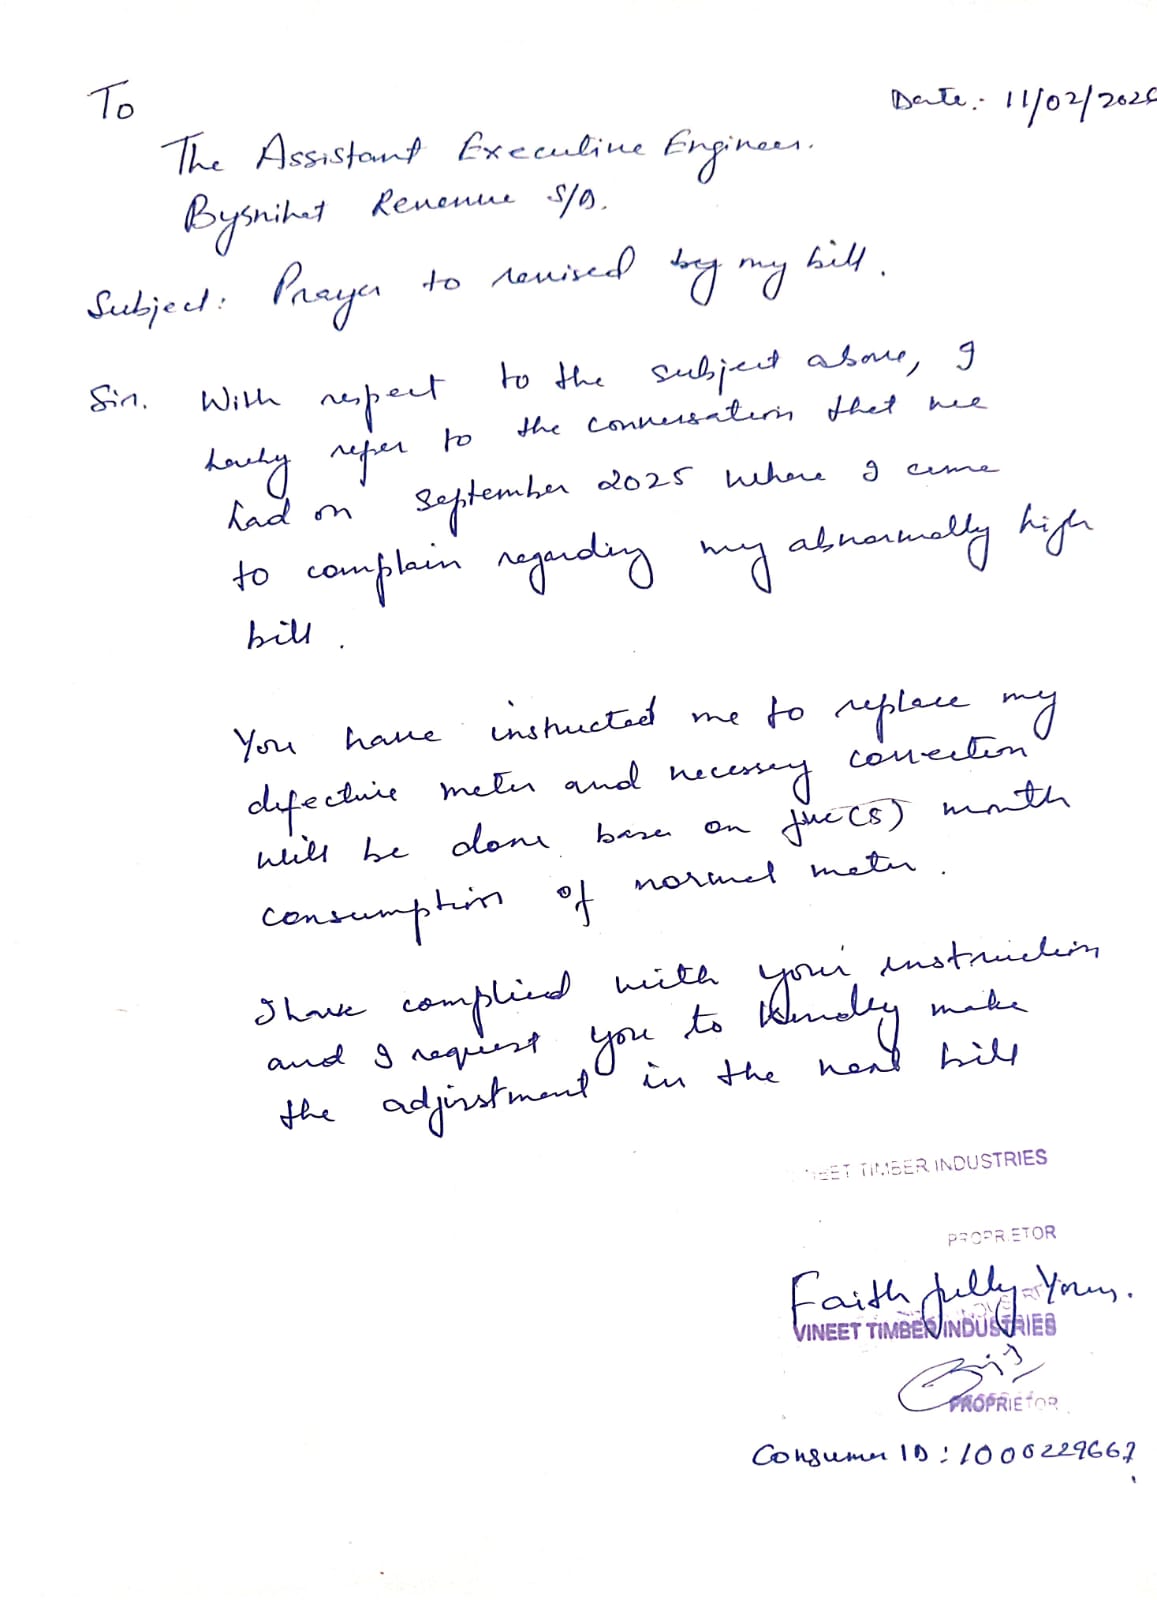 To
Date :- 11/02/202
The Assistant Executive Engineer.
Byrnihat Revenue S/D.
Subject: Prayer to revised my bill.
Sir. With respect to the subject above, I
hereby refer to the conversation that we
had on September 2025 where I came
to complain regarding my abnormally high
bill.
You have instructed me to replace my
defective meter and necessary correction
will be done base on five(5) month
consumption of normal meter.
I have complied with your instruction
and I request you to kindly make
the adjustment in the next bill
EET TIMBER INDUSTRIES
PROPRIETOR
Faithfully Yours.
VINEET TIMBER INDUSTRIES
PROPRIETOR
Consumer ID : 1000229667